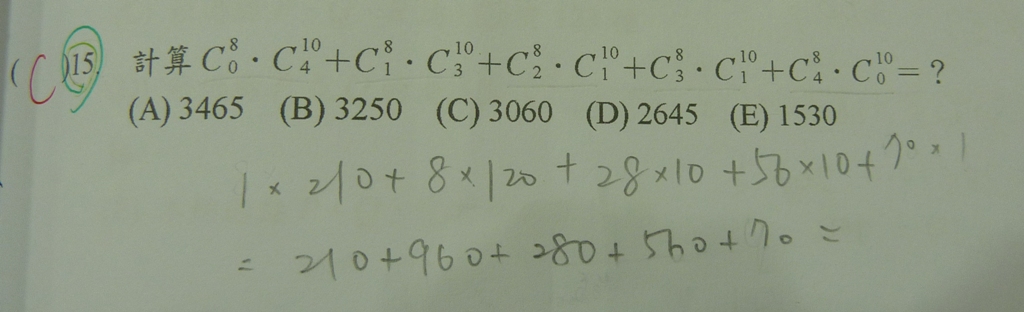 ( C ) 15. 計算 $C_0^8 \cdot C_4^{10} + C_1^8 \cdot C_3^{10} + C_2^8 \cdot C_1^{10} + C_3^8 \cdot C_1^{10} + C_4^8 \cdot C_0^{10} = ?$
(A) 3465 (B) 3250 (C) 3060 (D) 2645 (E) 1530
1 × 210 + 8 × 120 + 28 × 10 + 56 × 10 + 70 × 1
= 210 + 960 + 280 + 560 + 70 =